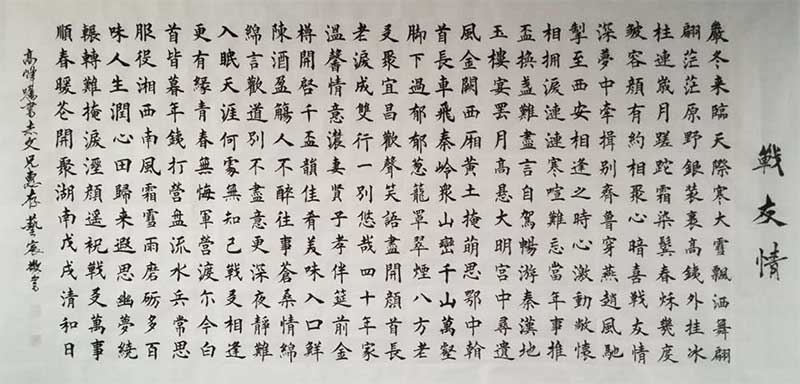 戰友情
嚴冬来臨天際寒大雪飄洒舞翩
翩茫茫原野銀装裹高銭外挂冰
柱連歲月蹉跎霜染鬓春秌幾度
皴容顏有約相聚心暗喜戰友情
深夢中牽揖别齊魯穿燕趙風馳
掣至西安相逢之時心激動敞懷
相拥淚漣漣寒喧難忘當年事推
盃換盏難盡言自駕暢游秦漢地
玉樓宴罷月高懸大明宫中尋遺
風金闕西厢黄土掩萌思鄂中翰
首長車飛秦岭眾山巒千山萬壑
脚下過郁郁葱蘢罩翠煙八方老
友聚宜昌歡聲笑語盡開顔首長
老淚成雙行一别悠哉四十年家
温馨情意濃妻賢子孝伴筵前金
樽開啓千盃韻佳肴美味入口鮮
陳酒盈觴人不醉往事蒼桑情綿
綿言歡道别不盡意更深夜靜難
入眠天涯何處無知己戰友相逢
更有緣青春無悔軍营淚尔今白
首皆暮年錢打营盘流水兵常思
服役湘西南風霜雪雨磨砺多百
味人生潤心田歸来遐思幽夢繞
輾轉難掩淚溼顔遥祝戰友萬事
順春暖花開聚湖南戊戌清和日
高峰書文兄惠存藝宸敬書